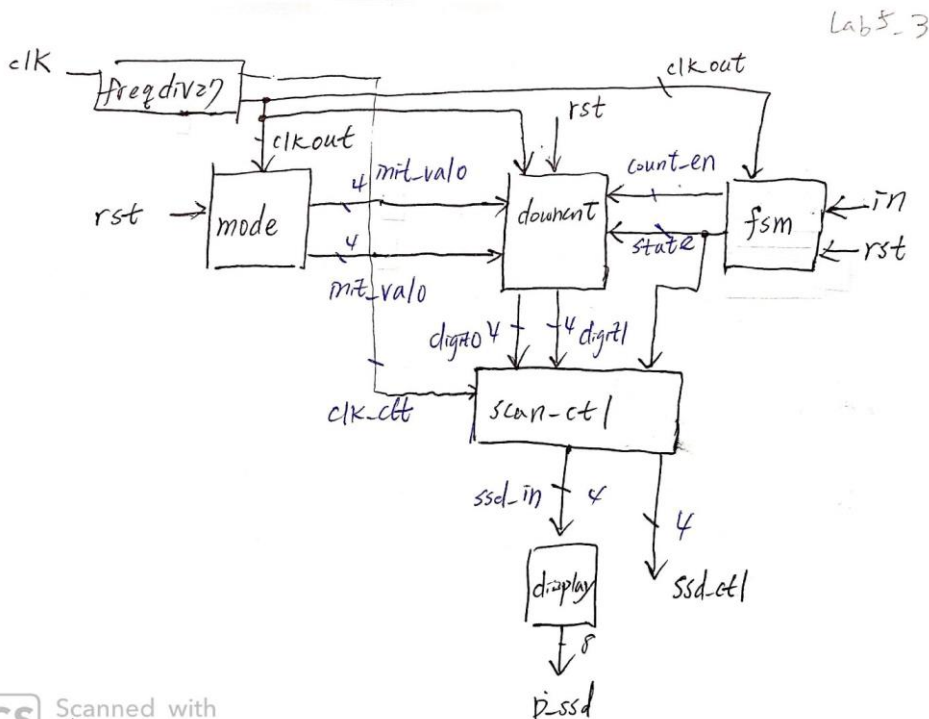 Lab5_3
clk
freqdiv27
clkout
clkout
rst
rst
mode
4
init_val0
4
init_val0
downcnt
count_en
state
fsm
in
rst
digit0
4
4
digit1
clk_ctl
scan_ctl
ssd_in
4
4
ssd_ctl
display
8
D_ssd
CS
Scanned with